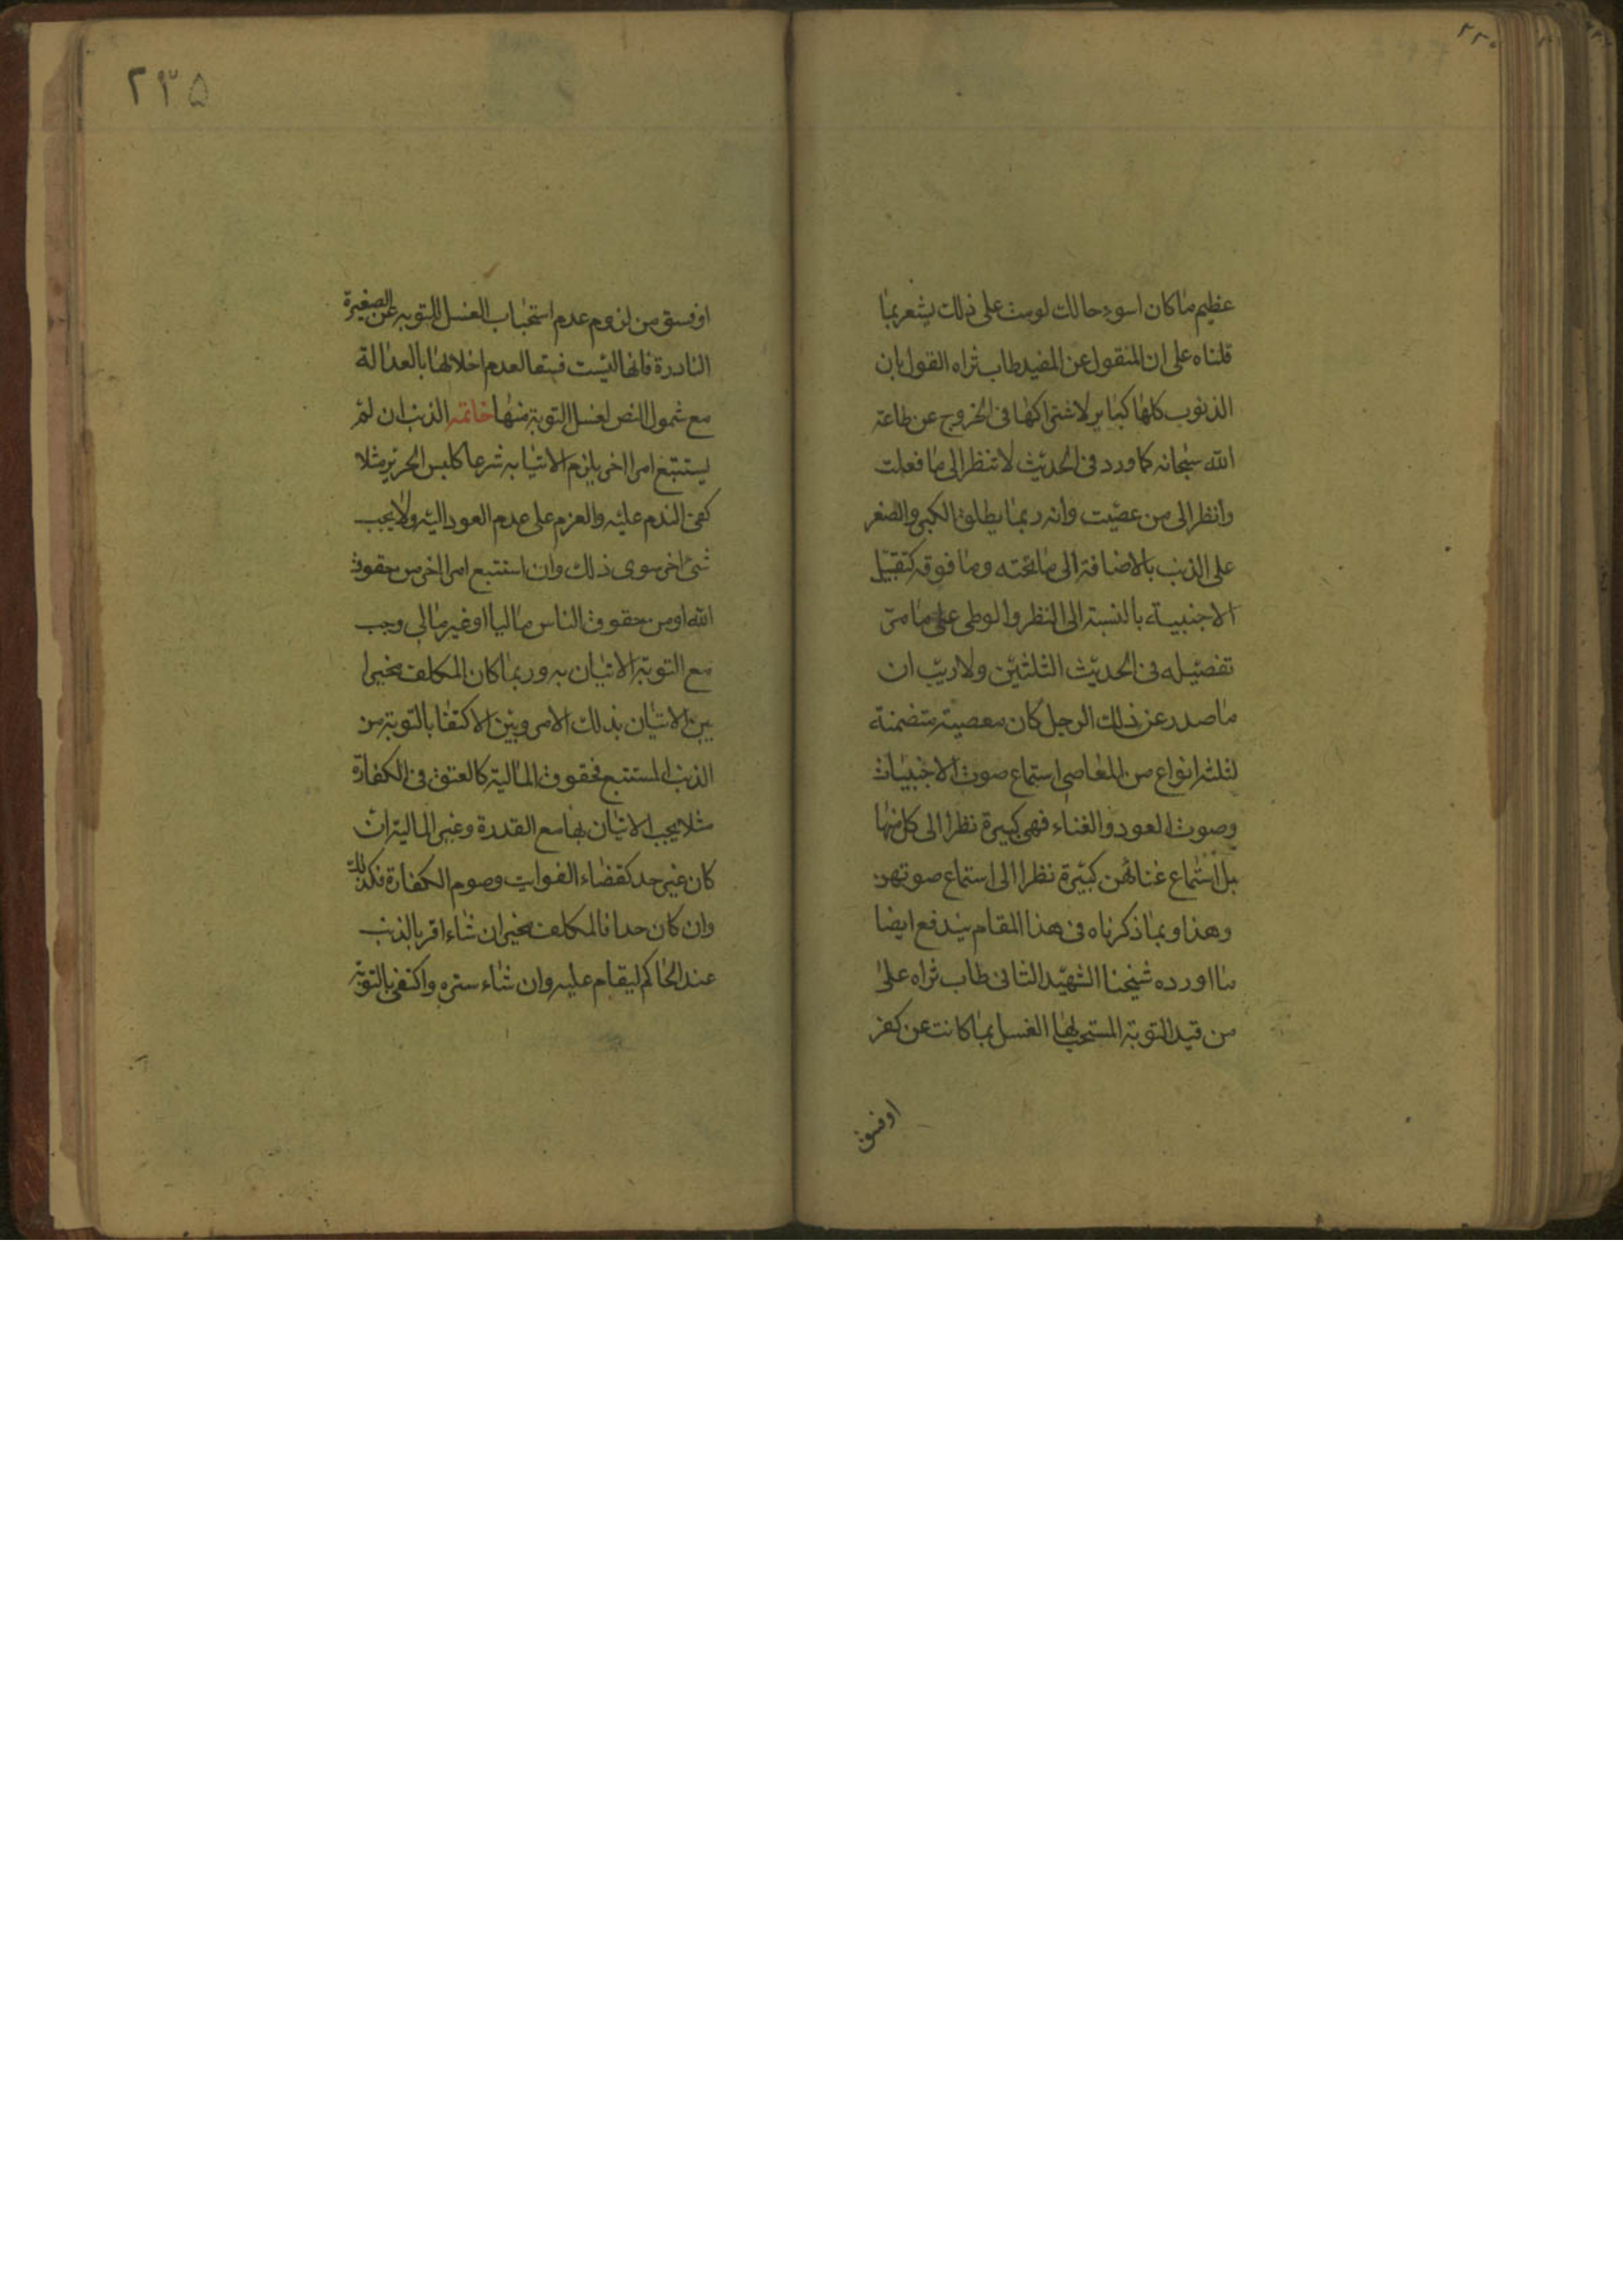 عظيم ماكان اسوء حالك لومت على ذلك يشعر بما
قلناه على ان المنقول عن المفيد طاب ثراه القول بان
الذنوب كلها كباير لاشتراكها فى الخروج عن طاعة
الله سبحانه كما ورد فى الحديث لا تنظر الى ما فعلت
وانظر الى من عصيت وانه ربما يطلق الكبر والصغر
على الذنب بالاضافة الى ما تحته وما فوقه كتقبيل
الاجنبية بالنسبة الى النظر والوطى على ما مر
تفصيله فى الحديث الثلثين ولا ريب ان
ما صدر عن ذلك الرجل كان معصية متضمنة
لثلثه انواع من المعاصى استماع صوت الاجنبيات
وصوت العود والغناء فهى كبيرة نظرا الى كل منها
بل استماع غنائهن كبيرة نظرا الى استماع صوتهن
وهذا وبما ذكرناه فى هذا المقام يندفع ايضا
ما اورده شيخنا الشهيد الثانى طاب ثراه على
من قيد التوبة المستحب لها الغسل بما كانت عن كفر
او فسق
٢٣٥
او فسق من لزوم عدم استحباب الغسل للتوبه عن الصغيرة
النادرة فانها ليست فسقا لعدم اخلالها بالعدالة
مع شمول النص لغسل التوبة منها خاتمه الذنب ان لم
يستتبع امرا اخر يلزم الاتيا به شرعا كلبس الحرير مثلا
كفى الندم عليه والعزم على عدم العود اليه ولا يجب
شئ اخر سوى ذلك وان استتبع امرا اخر من حقوق
الله او من حقوق الناس ماليا او غير مالى وجب
مع التوبة الاتيان به وربما كان المكلف مخيرا
بين الاتيان بذلك الامر وبين الاكتفا بالتوبة من
الذنب المستتبع فحقوق المالية كالعتق فى الكفارة
مثلا يجب الاتيان بها مع القدرة وغير المالية ان
كان غير حد كقضاء الفوايت وصوم الكفارة فكذلك
وان كان حدا فالمكلف مخير ان شاء اقر بالذنب
عند الحاكم ليقام عليه وان شاء ستره واكتفى بالتوبة